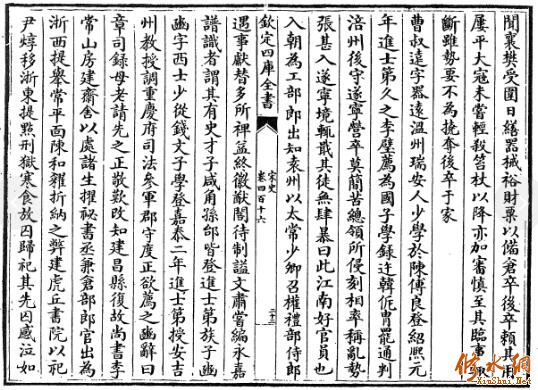 聞襄樊受圍日繕器械裕財粟以備倉卒後卒賴其用
屢平大寇未嘗輕殺笞杖以降亦加審慎至其臨事決
斷雖勢要不為撓奪後卒于家
曹叔遠字器遠溫州瑞安人少學於陳傅良登紹熙元
年進士第久之李壁薦為國子學錄迕韓侂胄罷通判
涪州後守遂寧營卒莫簡苦總領所侵刻相率稱亂勢
張甚入遂寧境輒戢其徒無肆暴曰此江南好官員也
入朝為工部郎出知袁州以太常少卿召權禮部侍郎
欽定四庫全書
宋史
卷四百十六
二十三
遇事獻替多所裨益終徽猷閣待制謚文肅嘗編永嘉
譜識者謂其有史才子咸角孫邰皆登進士第族子豳
豳字西士少從錢文子學登嘉泰二年進士第授安吉
州教授調重慶府司法參軍郡守度正欲薦之豳辭曰
章司錄母老請先之正敬歎改知建昌縣復故尚書李
常山房建齋舍以處諸生擢祕書丞兼倉部郎官出為
浙西提舉常平面陳和糴折納之弊建虎丘書院以祀
尹焞移浙東提點刑獄寒食放囚歸祀其先囚感泣如
修水網
XiuShui.Net